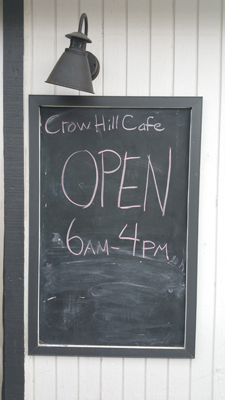 Crow Hill Cafe
OPEN
6AM-4PM